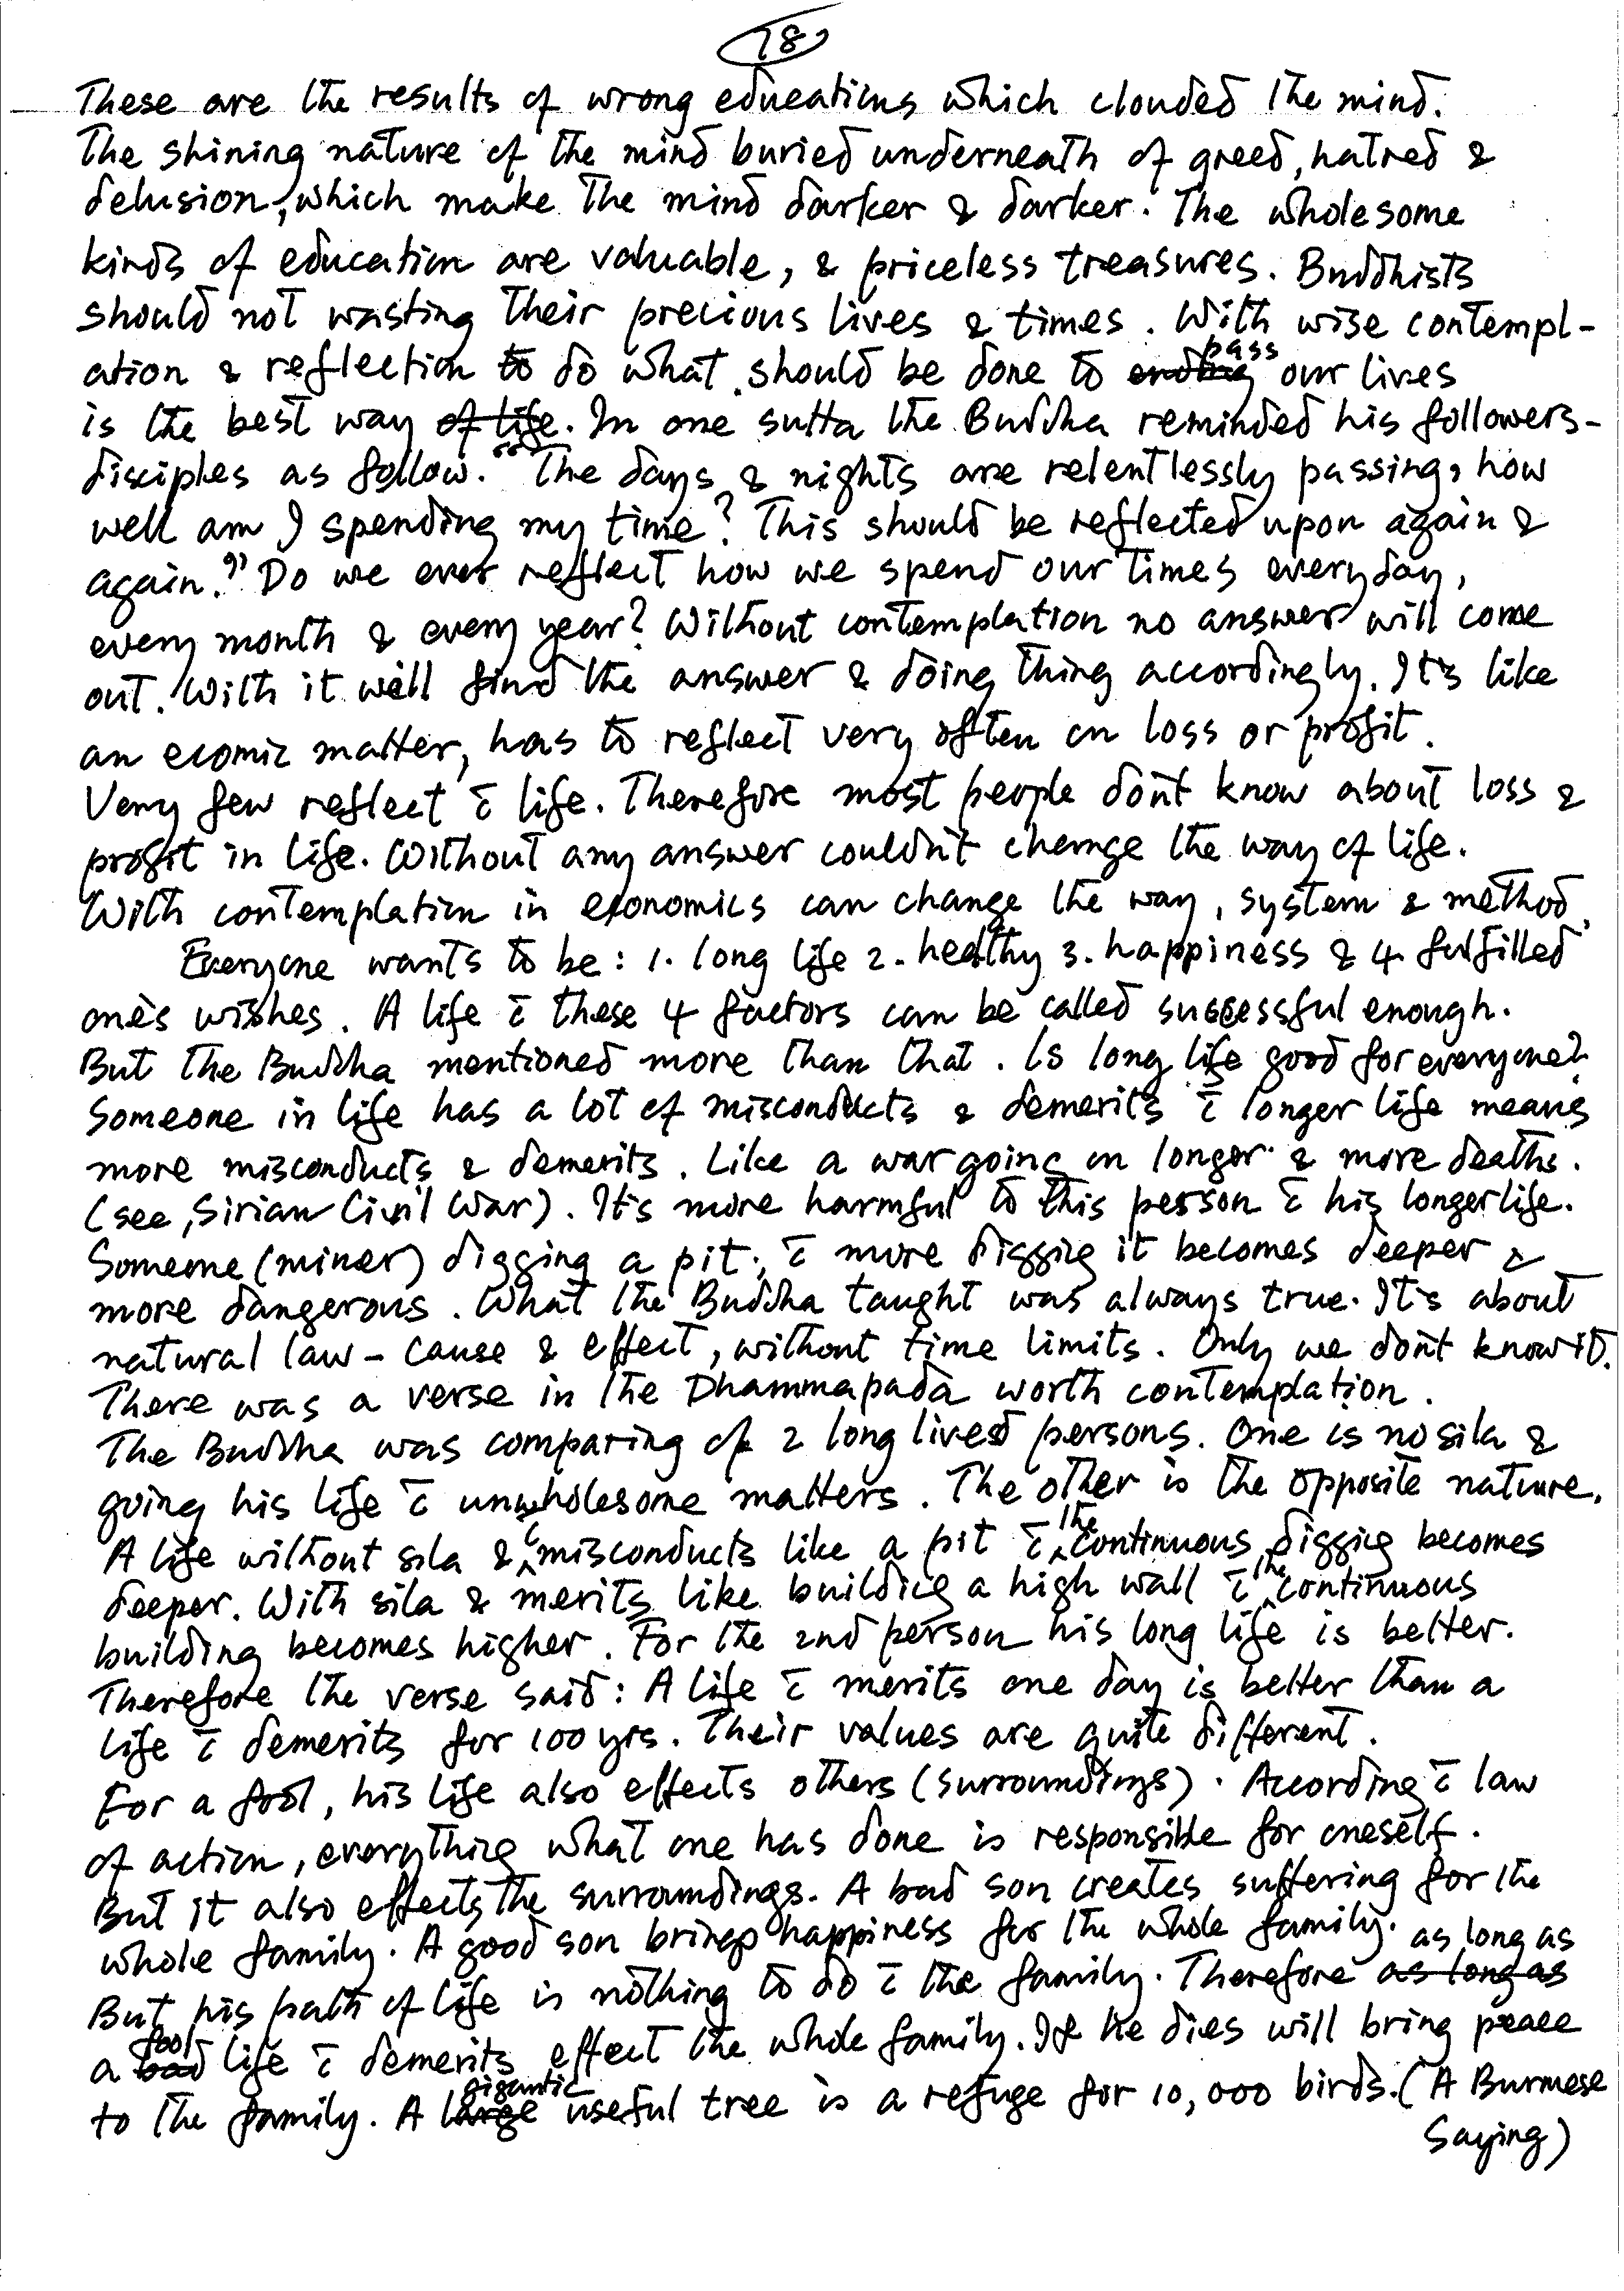 78
These are the results of wrong educations which clouded the mind.
The shining nature of the mind buried underneath of greed, hatred &
delusion, which make the mind darker & darker. The wholesome
kinds of education are valuable, & priceless treasures. Buddhists
should not wasting their precious lives & times. With wise contempl-
ation & reflection to do what should be done to ending pass our lives
is the best way of life. In one sutta the Buddha reminded his followers-
disciples as follow. "The days & nights are relentlessly passing, how
well am I spending my time? This should be reflected upon again &
again?" Do we ever reflect how we spend our times everyday,
every month & every year? Without contemplation no answer will come
out. With it will find the answer & doing thing accordingly. It's like
an ecomic matter, has to reflect very often on loss or profit.
Very few reflect c̄ life. Therefore most people don't know about loss &
profit in life. Without any answer couldn't change the way of life.
With contemplation in economics can change the way, system & method.
Everyone wants to be: 1. long life 2. healthy 3. happiness & 4. fulfilled
one's wishes. A life c̄ these 4 factors can be called successful enough.
But the Buddha mentioned more than that. Is long life good for everyone?
Someone in life has a lot of misconducts & demerits c̄ longer life means
more misconducts & demerits. Like a war going on longer & more deaths.
(see, Sirian Civil War). It's more harmful to this person c̄ his longer life.
Someone (miner) digging a pit, c̄ more diggig it becomes deeper &
more dangerous. What the Buddha taught was always true. It's about
natural law - cause & effect, without time limits. Only we don't know it.
There was a verse in the Dhammapada worth contemplation.
The Buddha was comparing of 2 long lived persons. One is no sila &
going his life c̄ unwholesome matters. The other is the opposite nature.
A life without sila & c̄ misconducts like a pit c̄ the continuous diggig becomes
deeper. With sila & merits like buildig a high wall c̄ the continuous
building becomes higher. For the 2nd person his long life is better.
Therefore the verse said: A life c̄ merits one day is better than a
life c̄ demerits for 100 yrs. Their values are quite different.
For a fool, his life also effects others (surroundings). According c̄ law
of action, everything what one has done is responsible for oneself.
But it also effects the surroundings. A bad son creates suffering for the
whole family. A good son brings happiness for the whole family.
But his path of life is nothing to do c̄ the family. Therefore as long as as long as
a bad fool life c̄ demerits effect the whole family. If he dies will bring peace
to the family. A large gigantic useful tree is a refuge for 10,000 birds. (A Burmese
Saying)